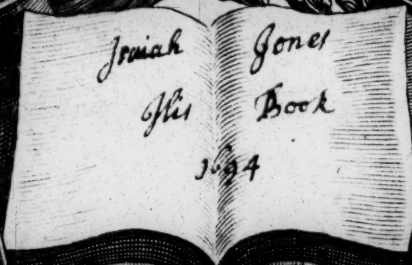 Isaiah Jones
His Book
1694